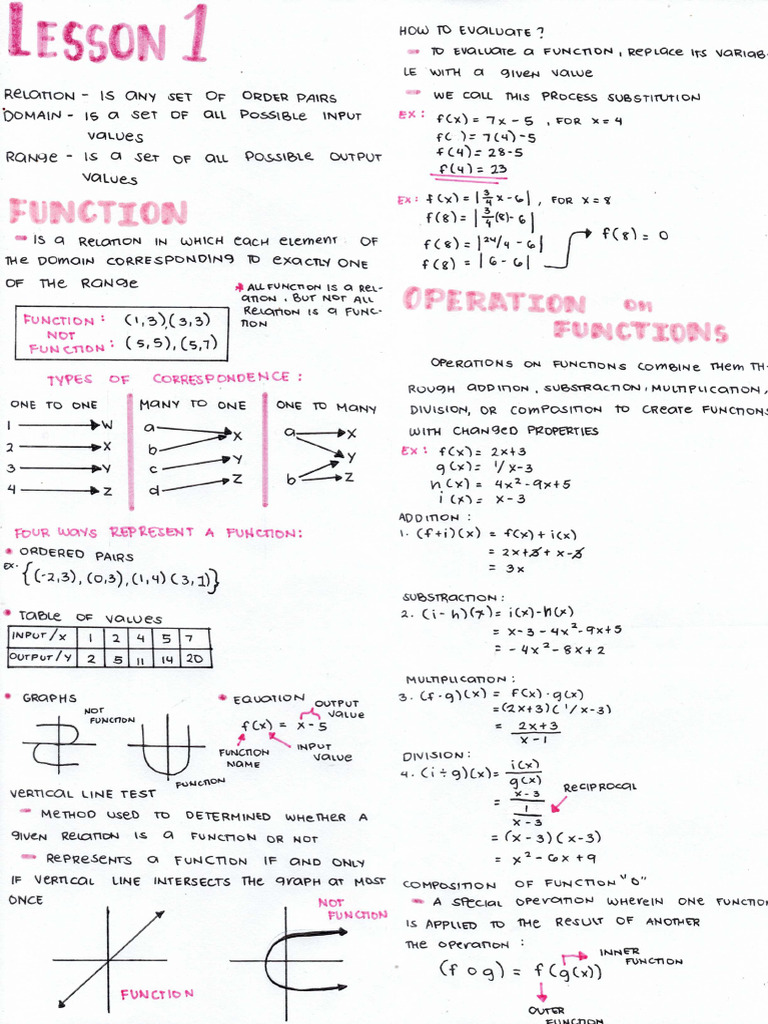 LESSON 1
RELATION - IS ANY SET OF ORDER PAIRS
DOMAIN - IS A SET OF ALL POSSIBLE INPUT
VALUES
RANGE - IS A SET OF ALL POSSIBLE OUTPUT
VALUES
FUNCTION
- IS A RELATION IN WHICH EACH ELEMENT OF
THE DOMAIN CORRESPONDING TO EXACTLY ONE
OF THE RANGE
* ALL FUNCTION IS A REL-
ATION, BUT NOT ALL
RELATION IS A FUNC-
TION
FUNCTION: (1,3),(3,3)
NOT
FUNCTION: (5,5),(5,7)
TYPES OF CORRESPONDENCE:
ONE TO ONE
1 → W
2 → X
3 → Y
4 → Z
MANY TO ONE
a
b
c
d
X
Y
Z
ONE TO MANY
a
b
X
Y
Z
FOUR WAYS REPRESENT A FUNCTION:
• ORDERED PAIRS
EX. {(-2,3),(0,3),(1,4)(3,1)}
• TABLE OF VALUES
INPUT/X 1 2 4 5 7
OUTPUT/Y 2 5 11 14 20
• GRAPHS
NOT
FUNCTION
FUNCTION
• EQUATION
OUTPUT
VALUE
f(x) = x-5
FUNCTION
NAME
INPUT
VALUE
VERTICAL LINE TEST
- METHOD USED TO DETERMINED WHETHER A
GIVEN RELATION IS A FUNCTION OR NOT
- REPRESENTS A FUNCTION IF AND ONLY
IF VERTICAL LINE INTERSECTS THE GRAPH AT MOST
ONCE
FUNCTION
NOT
FUNCTION
HOW TO EVALUATE?
- TO EVALUATE A FUNCTION, REPLACE ITS VARIAB-
LE WITH A GIVEN VALUE
- WE CALL THIS PROCESS SUBSTITUTION
EX: f(x) = 7x - 5, FOR x = 4
f( ) = 7(4)-5
f(4) = 28-5
f(4) = 23
EX: f(x) = |3/4 x - 6|, FOR x = 8
f(8) = |3/4(8) - 6|
f(8) = |24/4 - 6|
f(8) = |6 - 6| → f(8) = 0
OPERATION on
FUNCTIONS
OPERATIONS ON FUNCTIONS COMBINE THEM TH-
ROUGH ADDITION, SUBSTRACTION, MULTIPLICATION,
DIVISION, OR COMPOSITION TO CREATE FUNCTIONS
WITH CHANGED PROPERTIES
EX: f(x) = 2x+3
g(x) = 1/x-3
h(x) = 4x²-9x+5
i(x) = x-3
ADDITION:
1. (f+i)(x) = f(x)+i(x)
= 2x+3+x-3
= 3x
SUBSTRACTION:
2. (i-h)(x) = i(x)-h(x)
= x-3-4x²-9x+5
= -4x²-8x+2
MULTIPLICATION:
3. (f·g)(x) = f(x)·g(x)
= (2x+3)(1/x-3)
= 2x+3 / x-1
DIVISION:
4. (i÷g)(x) = i(x) / g(x)
= x-3 / 1 / x-3
RECIPROCAL
= (x-3)(x-3)
= x²-6x+9
COMPOSITION OF FUNCTION "O"
- A SPECIAL OPERATION WHEREIN ONE FUNCTION
IS APPLIED TO THE RESULT OF ANOTHER
THE OPERATION:
INNER
FUNCTION
(f o g) = f(g(x))
OUTER
FUNCTION